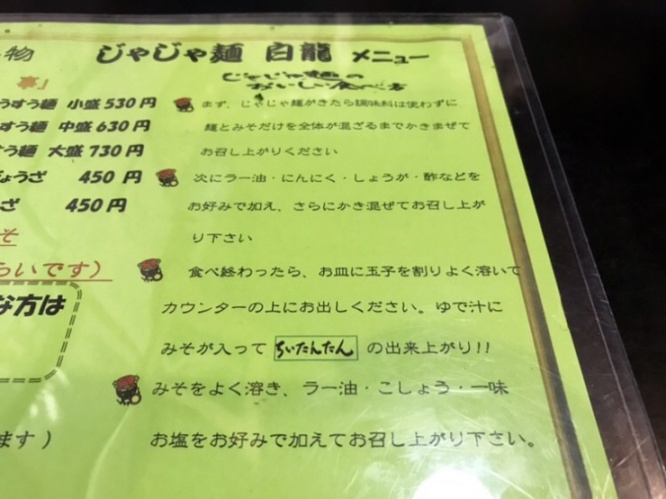 物
じゃじゃ麺 白龍 メニュー
じゃじゃ麺の
おいしい食べ方
事」
うすう麺 小盛 530円
すう麺 中盛 630円
すう麺 大盛 730円
ょうざ 450円
ざ 450円
そ
らいです）
な方は
ます）
まず、じゃじゃ麺がきたら調味料は使わずに
麺とみそだけを全体が混ざるまでかきまぜて
お召し上がりください
次にラー油・にんにく・しょうが・酢などを
お好みで加え、さらにかき混ぜてお召し上が
り下さい
食べ終わったら、お皿に玉子を割りよく溶いて
カウンターの上にお出しください。ゆで汁に
みそが入って ちいたんたん の出来上がり!!
みそをよく溶き、ラー油・こしょう・一味
お塩をお好みで加えてお召し上がり下さい。